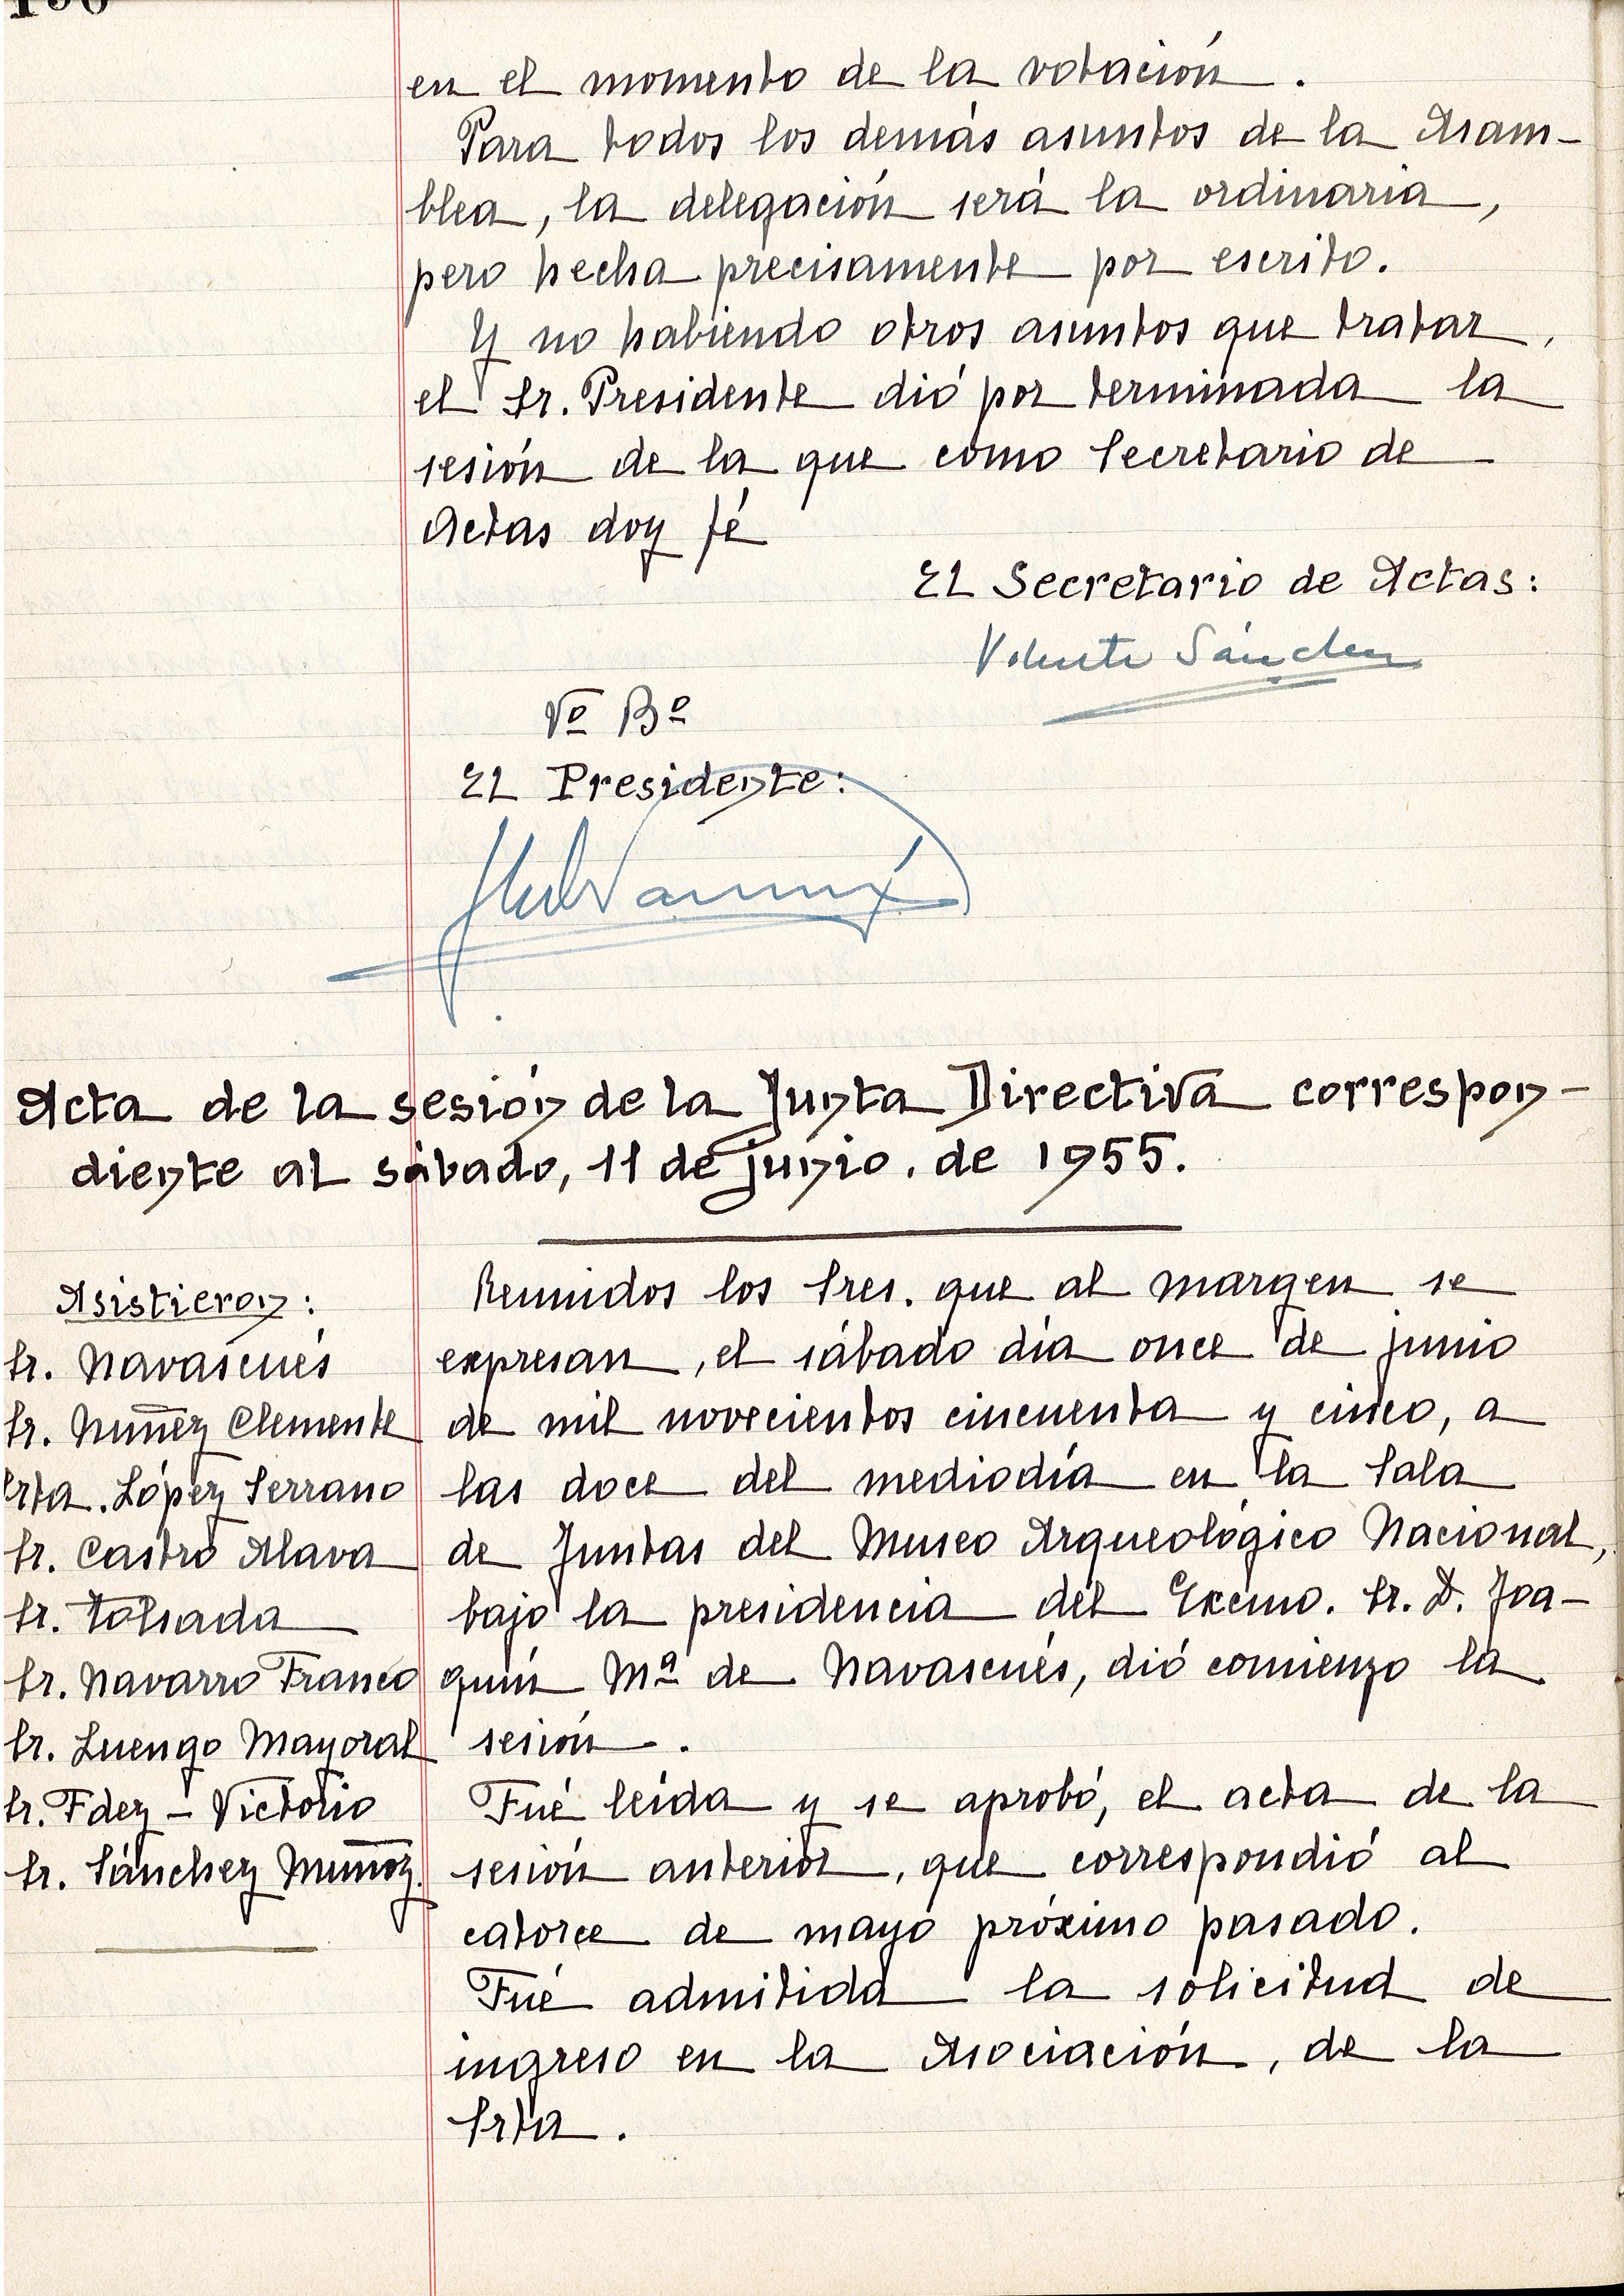 en el momento de la votación.
Para todos los demás asuntos de la Asam-
blea, la delegación será la ordinaria,
pero hecha precisamente por escrito.
Y no habiendo otros asuntos que tratar,
el Sr. Presidente dió por terminada la
sesión de la que como Secretario de
Actas doy fé
El Secretario de Actas:
Sánchez
Vº Bº
El Presidente:
Acta de la sesión de la Junta Directiva correspon-
diente al sábado, 11 de junio, de 1955.
Asistieron:
Sr. Navascués
Sr. Nuñez Clemente
Srta. López Serrano
Sr. Castro Alava
Sr. Tolsada
Sr. Navarro Franco
Sr. Luengo Mayoral
Sr. Fdez - Victorio
Sr. Sánchez Muñoz.
Reunidos los Sres. que al margen se
expresan, el sábado día once de junio
de mil novecientos cincuenta y cinco, a
las doce del mediodía en la Sala
de Juntas del Museo Arqueológico Nacional,
bajo la presidencia del Excmo. Sr. D. Joa-
quín Mª de Navascués, dió comienzo la
sesión.
Fué leída y se aprobó, el acta de la
sesión anterior, que correspondió al
catorce de mayo próximo pasado.
Fué admitida la solicitud de
ingreso en la Asociación, de la
Srta.